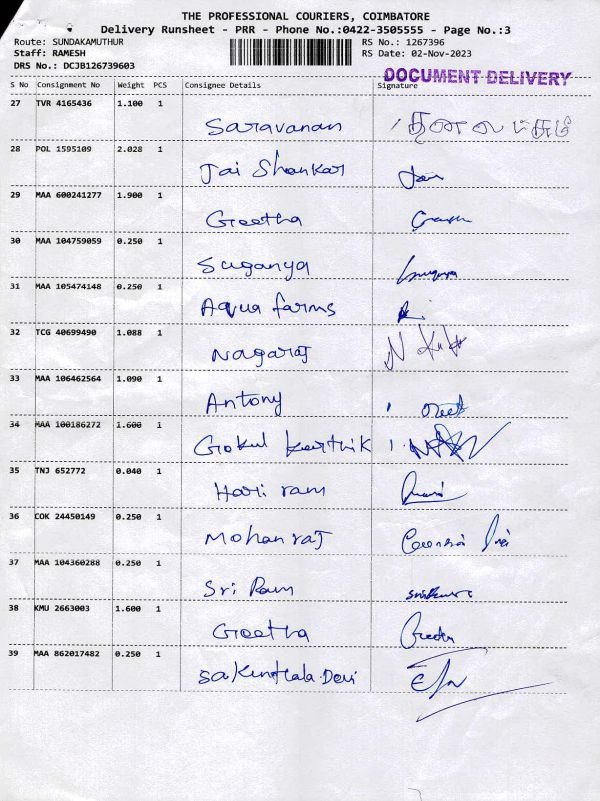 THE PROFESSIONAL COURIERS, COIMBATORE
Delivery Runsheet - PRR - Phone No.:0422-3505555 - Page No.:3
Route: SUNDAKAMUTHUR RS No.: 1267396
Staff: RAMESH RS Date: 02-Nov-2023
DRS No.: DCJB126739603
DOCUMENT DELIVERY
S No Consignment No Weight PCS Consignee Details Signature
27 TVR 4165436 1.100 1
Saravanan
28 POL 1595109 2.028 1
Jai Shankar
29 MAA 600241277 1.900 1
Geetha
30 MAA 104759059 0.250 1
Suganya
31 MAA 105474148 0.250 1
Aqua farms
32 TCG 40699490 1.088 1
Nagaraj
33 MAA 106462564 1.090 1
Antony
34 MAA 100186272 1.600 1
Gokul karthik
35 TNJ 652772 0.040 1
Hari ram
36 COK 24450149 0.250 1
Mohan raj
37 MAA 104360288 0.250 1
Sri Ram
38 KMU 2663003 1.600 1
Geetha
39 MAA 862017482 0.250 1
Sakunthala Devi